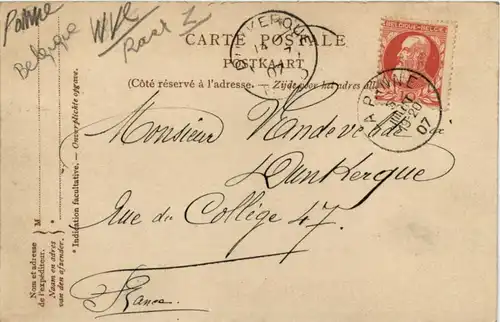 Panne
Belgique
CARTE POSTALE
POSTKAART
(Côté réservé à l'adresse. — Zijde voor het adres
BELGIQUE-BELGIË
PANNE
19-20
07
07
Monsieur
Dunkerque
Rue du Collège 47.
France.
* Indication facultative. — Onverplichte opgave.
M
Nom et adresse
de l'expéditeur.
Naam en adres
van den afzender.